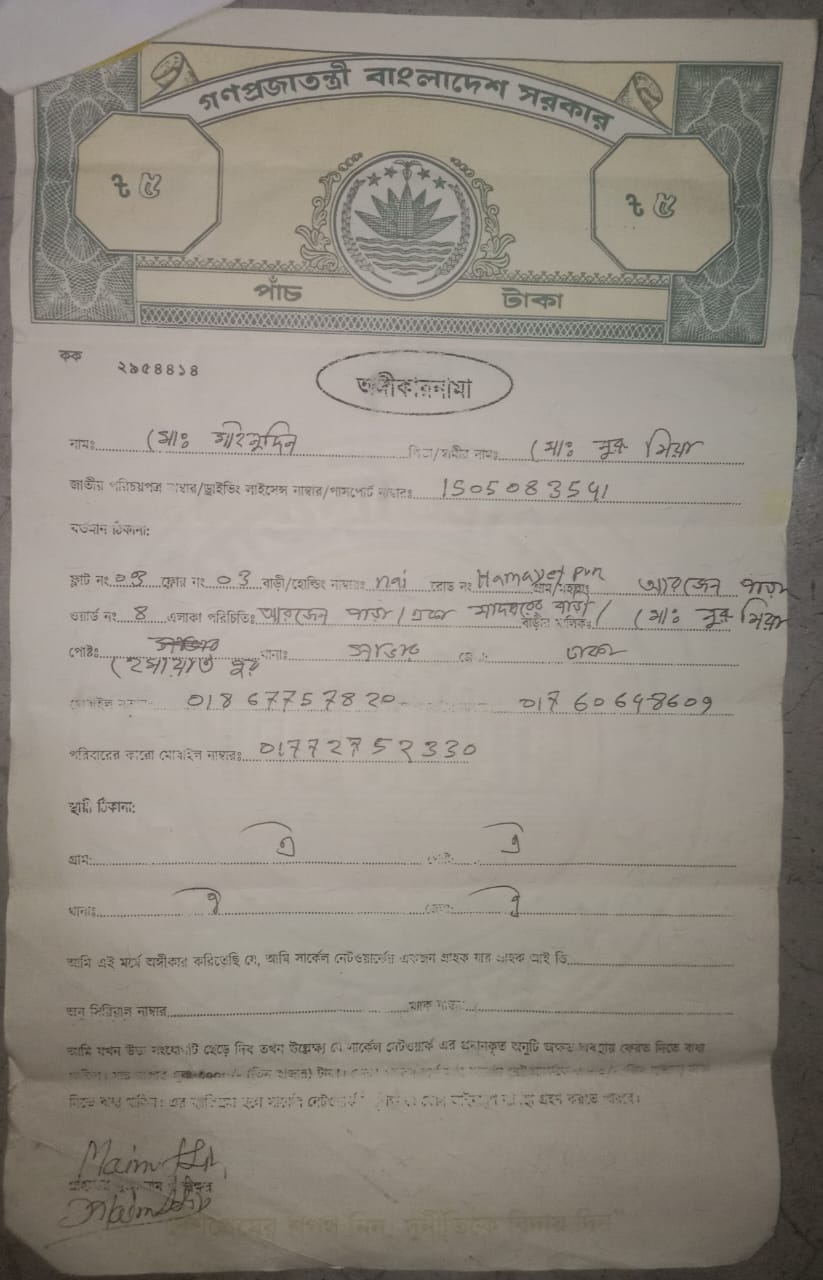 গণপ্রজাতন্ত্রী বাংলাদেশ সরকার
৳ ৫ ৳ ৫
পাঁচ টাকা
কক ২৯৫৪৪১৪
অঙ্গীকারনামা
নামঃ মোঃ মাইনুদ্দিন পিতা/স্বামীর নামঃ মোঃ নুরু মিয়া
জাতীয় পরিচয়পত্র নাম্বার/ড্রাইভিং লাইসেন্স নাম্বার/পাসপোর্ট নাম্বারঃ 1505083541
বর্তমান ঠিকানা:
ফ্লাট নং ০৩ ফ্লোর নং ০3 বাড়ী/হোল্ডিং নাম্বারঃ nai রোড নং Hamayet pur গ্রাম/মহল্লাঃ আরজেন পাড়া
ওয়ার্ড নং 8 এলাকা পরিচিতিঃ আরজেন পাড়া / মাদবরের বাড়ী / বাড়ীর মালিকঃ মোঃ নুরু মিয়া
পোষ্টঃ হেমায়েত পুর থানাঃ সাভার জেলাঃ ঢাকা
মোবাইল নাম্বারঃ 01867757820 01760648609
পরিবারের কারো মোবাইল নাম্বারঃ 01772752330
স্থায়ী ঠিকানা:
গ্রাম: ঐ পোষ্ট: ঐ
থানাঃ ঐ জেলা: ঐ
আমি এই মর্মে অঙ্গীকার করিতেছি যে, আমি সার্কেল নেটওয়ার্কের একজন গ্রাহক যার গ্রাহক আই ডি
অনু সিরিয়াল নাম্বার ম্যাক নাম্বার
আমি যখন উক্ত সংযোগটি ছেড়ে দিব তখন উল্লেক্ষ্য যে সার্কেল নেটওয়ার্ক এর প্রদানকৃত অনুটি অক্ষত অবস্থায় ফেরত দিতে বাধ্য
(তিন হাজার)
দিতে বাধ্য থাকিব। এর ব্যতিক্রম হলে সার্কেল নেটওয়ার্ক গ্রহন করতে পারবে।
দেশপ্রেমের শপথ নিন, দুর্নীতিকে বিদায় দিন"